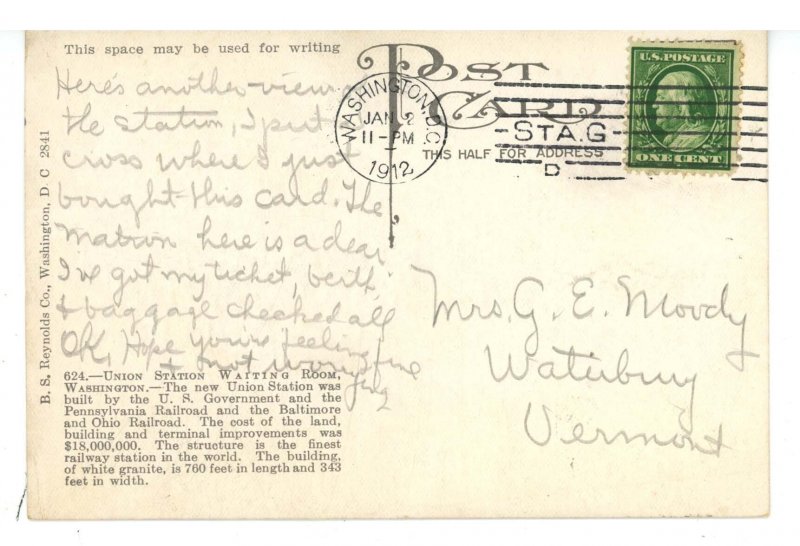 This space may be used for writing
Here's another view
the station, I put
cross where I just
bought this card. The
matron here is a dear
I've got my ticket, berth
& baggage checked all
OK, Hope yours feeling fine
& not worrying
624.—UNION STATION WAITING ROOM,
WASHINGTON.—The new Union Station was
built by the U. S. Government and the
Pennsylvania Railroad and the Baltimore
and Ohio Railroad. The cost of the land,
building and terminal improvements was
$18,000,000. The structure is the finest
railway station in the world. The building,
of white granite, is 760 feet in length and 343
feet in width.
B. S. Reynolds Co., Washington, D. C 2841
POST
CARD
THIS HALF FOR ADDRESS
WASHINGTON, D.C.
JAN 2
11-PM
1912
STA.G
D
U.S. POSTAGE
ONE CENT
Mrs. G. E. Moody
Waterbury
Vermont